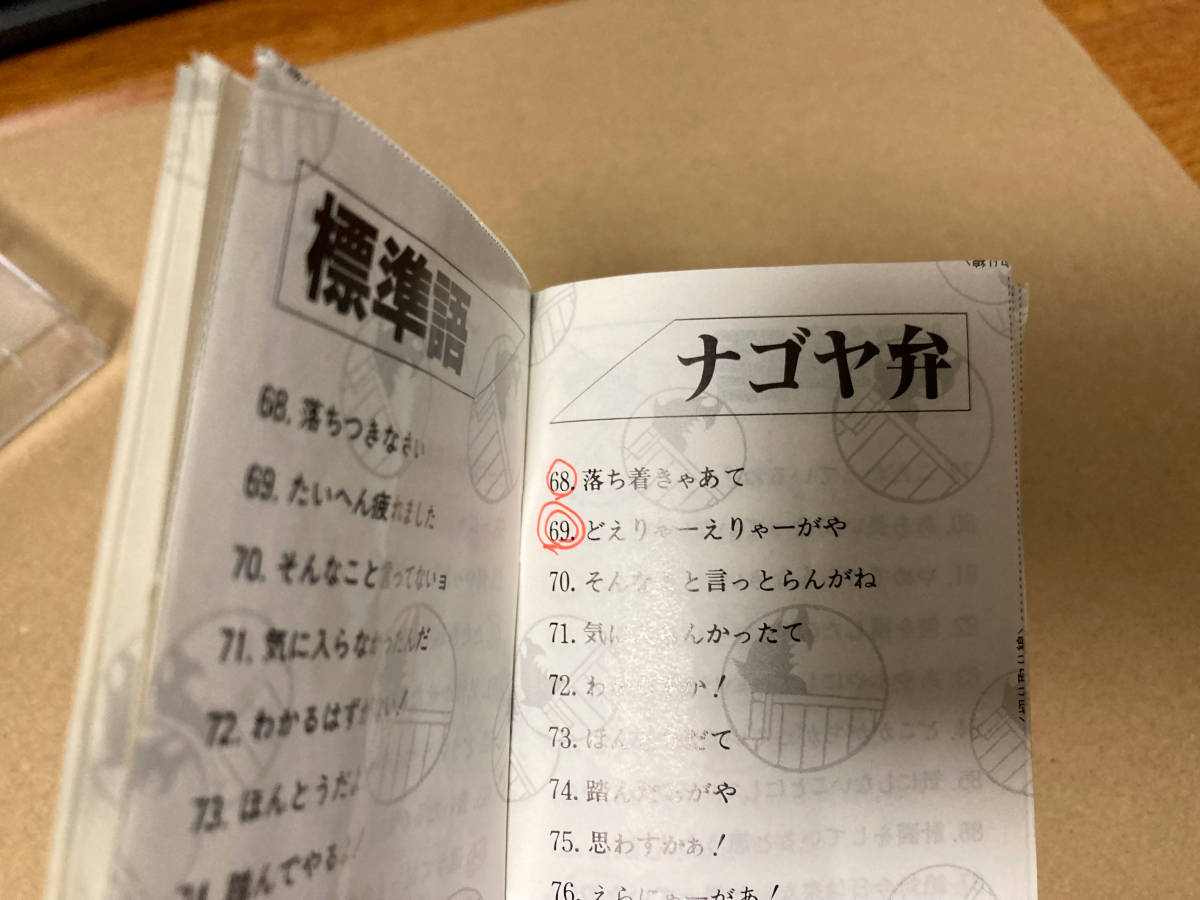 標準語
68. 落ちつきなさい
69. たいへん疲れました
70. そんなこと言ってないョ
71. 気に入らなかったんだ
72. わかるはずがない!
73. ほんとうだよ
踏んでやるよ!
ナゴヤ弁
68. 落ち着きゃあて
69. どえりゃーえりゃーがや
70. そんなこと言っとらんがね
71. 気に んかったて
72. わ か!
73. ほん どて
74. 踏んだるがや
75. 思わすかぁ!
76. えらにゃーがあ!